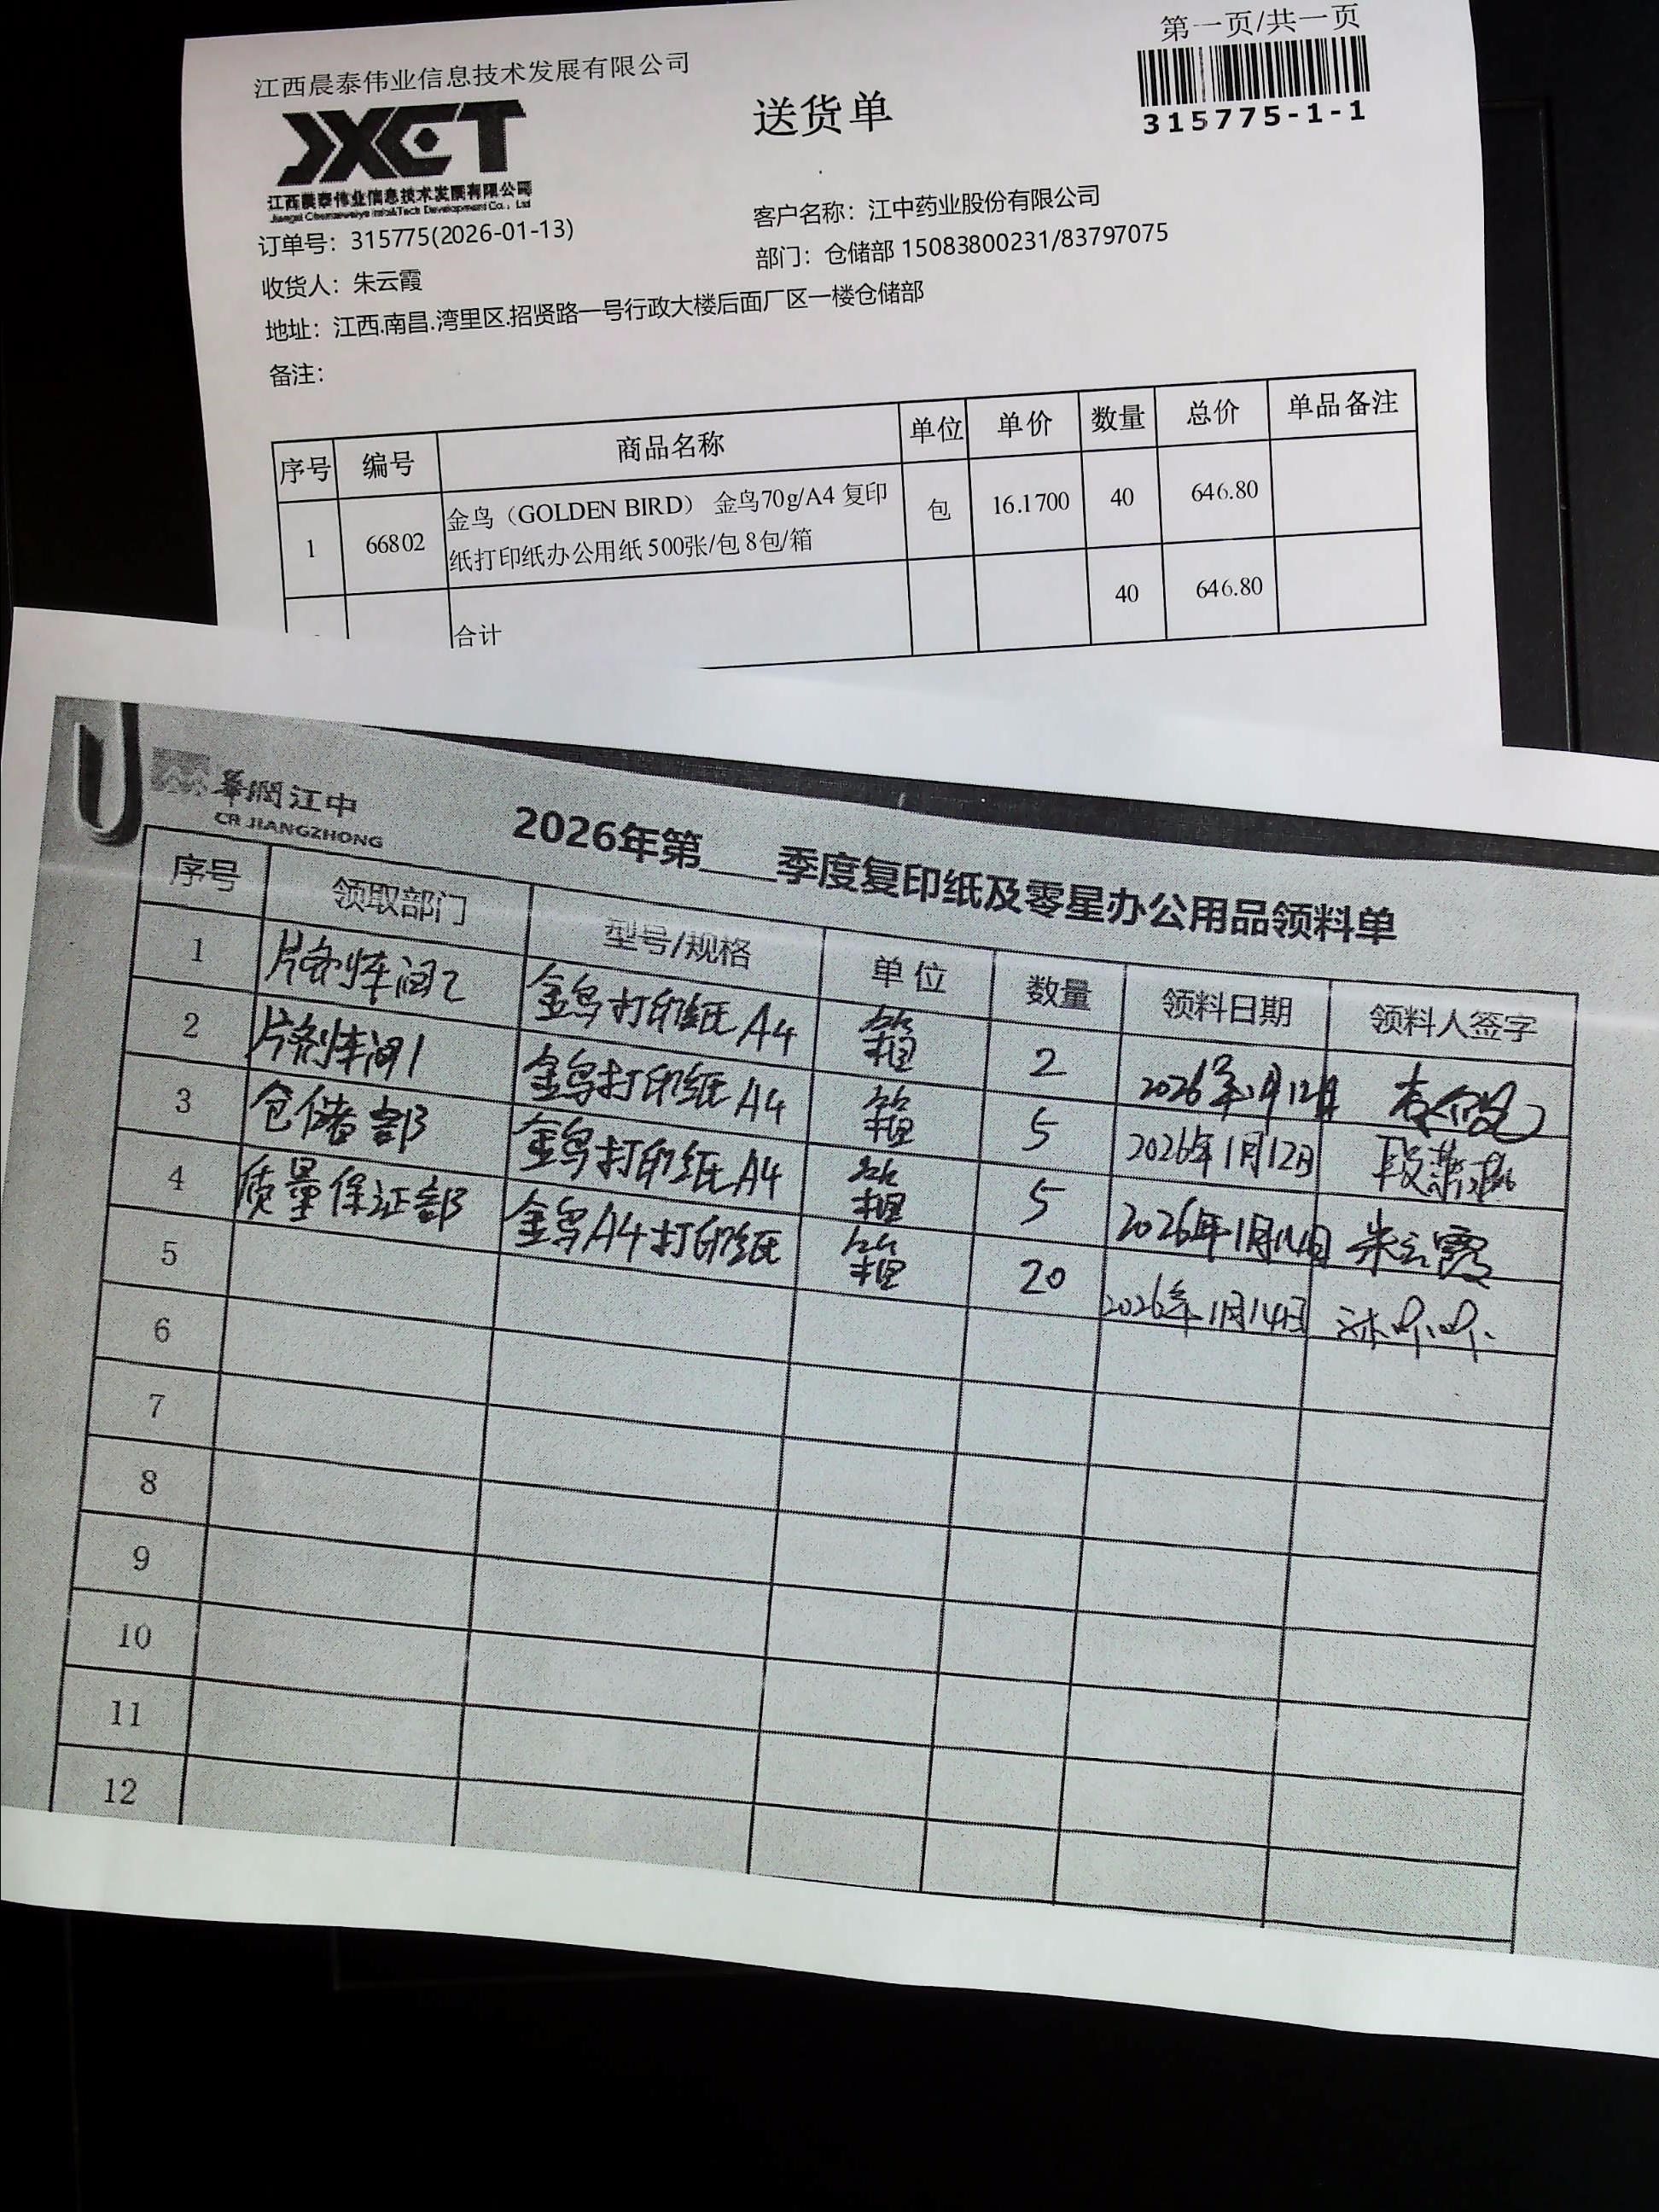 第一页/共一页
江西晨泰伟业信息技术发展有限公司
315775-1-1
送货单
JXCT
江西晨泰伟业信息技术发展有限公司
订单号：315775(2026-01-13)
客户名称：江中药业股份有限公司
收货人：朱云霞
部门：仓储部 15083800231/83797075
地址：江西.南昌.湾里区.招贤路一号行政大楼后面厂区一楼仓储部
备注：
序号 编号 商品名称 单位 单价 数量 总价 单品备注
1 66802 金鸟（GOLDEN BIRD） 金鸟70g/A4 复印 包 16.1700 40 646.80
纸打印纸办公用纸 500张/包 8包/箱
合计 40 646.80
華潤江中
CR JIANGZHONG
2026年第___季度复印纸及零星办公用品领料单
序号 领取部门 型号/规格 单位 数量 领料日期 领料人签字
1 片剂车间2 金鸟打印纸A4 箱 2 2026年1月12日
2 片剂车间1 金鸟打印纸A4 箱 5 2026年1月12日
3 仓储部 金鸟打印纸A4 箱 5 2026年1月14日 朱云霞
4 质量保证部 金鸟A4打印纸 箱 20 2026年1月14日
5
6
7
8
9
10
11
12